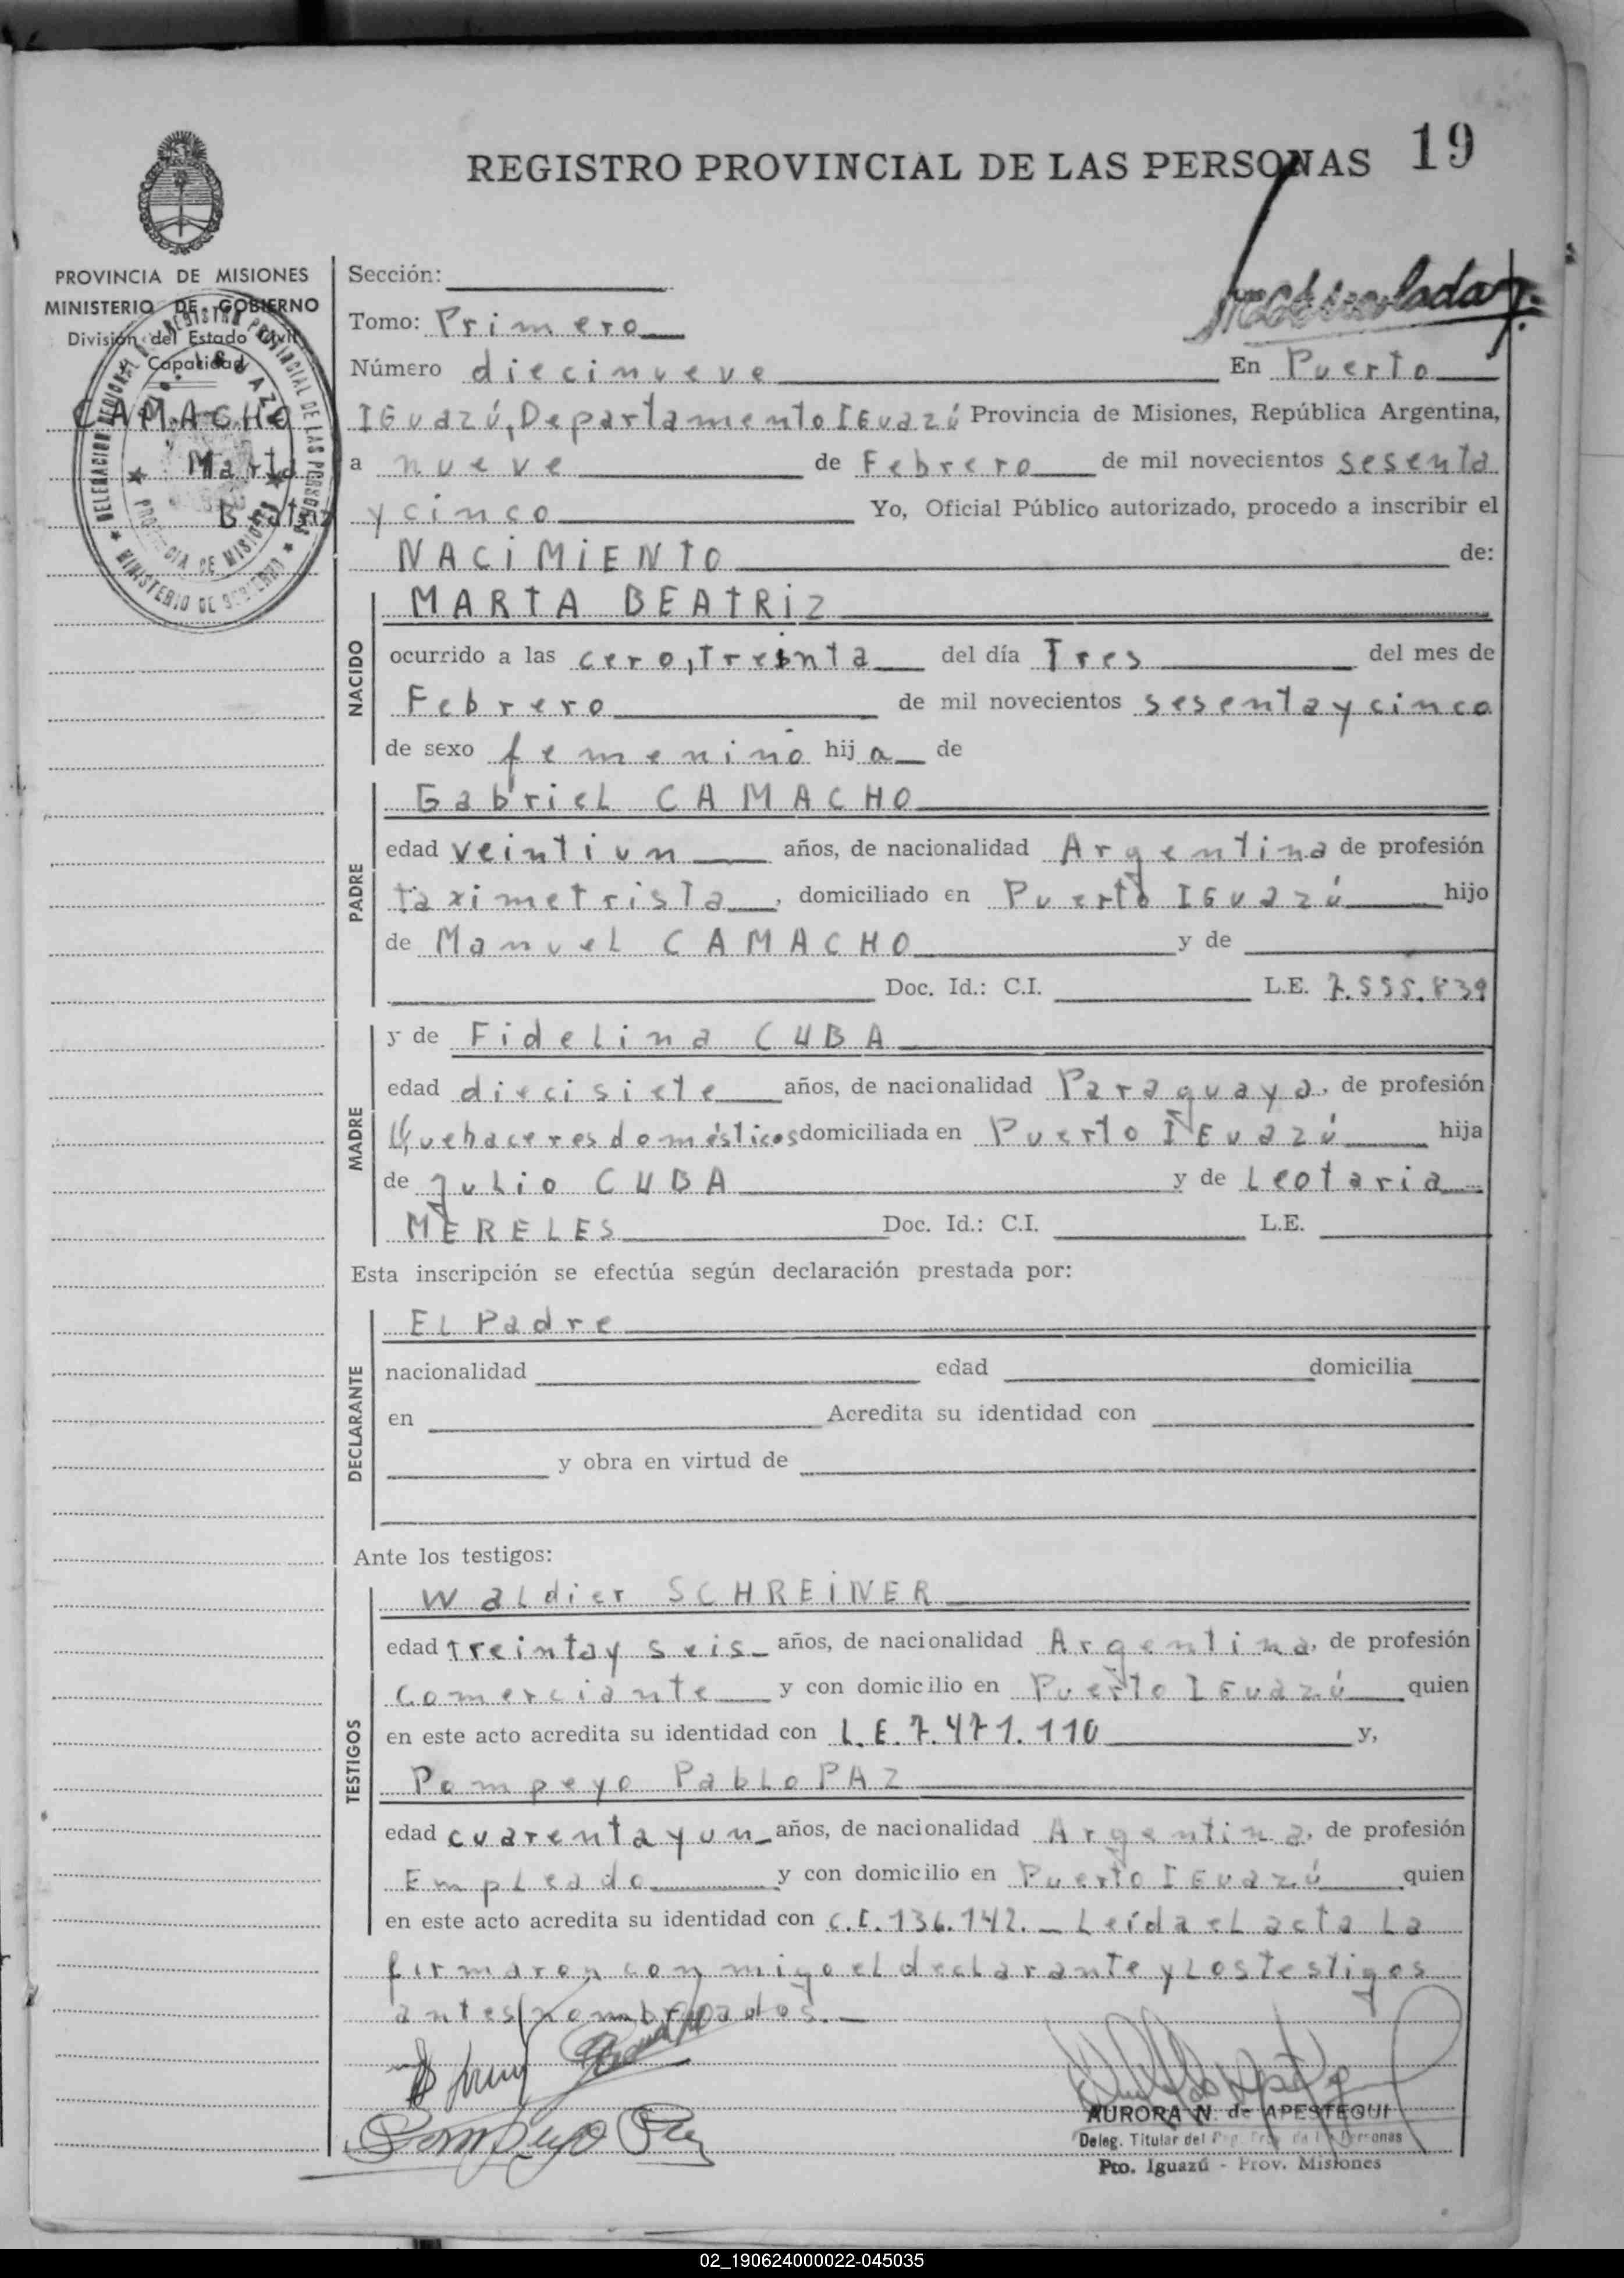 REGISTRO PROVINCIAL DE LAS PERSONAS 19
PROVINCIA DE MISIONES
MINISTERIO DE GOBIERNO
División del Estado Civil
Capacidad
CAMACHO
Marta
Beatriz
DELEGACION REGIONAL DEL REGISTRO PROVINCIAL DE LAS PERSONAS
PROVINCIA DE MISIONES
MINISTERIO DE GOBIERNO
Sección:
Tomo: Primero
Número diecinueve En Puerto
IGuazú, Departamento IGuazú Provincia de Misiones, República Argentina,
a nueve de Febrero de mil novecientos sesenta
y cinco Yo, Oficial Público autorizado, procedo a inscribir el
NACIMIENTO de:
NACIDO
MARTA BEATRIZ
ocurrido a las cero, Treinta del día Tres del mes de
Febrero de mil novecientos sesenta y cinco
de sexo femenino hij a de
PADRE
Gabriel CAMACHO
edad veintiun años, de nacionalidad Argentina de profesión
taximetrista, domiciliado en Puerto IGuazú hijo
de Manuel CAMACHO y de
Doc. Id.: C.I. L.E. 7.555.839
MADRE
y de Fidelina CUBA
edad diecisiete años, de nacionalidad Paraguaya, de profesión
Quehaceres domésticos domiciliada en Puerto IGuazú hija
de Julio CUBA y de Leotaria
MERELES Doc. Id.: C.I. L.E.
Esta inscripción se efectúa según declaración prestada por:
DECLARANTE
El Padre
nacionalidad edad domicilia
en Acredita su identidad con
y obra en virtud de
Ante los testigos:
TESTIGOS
Waldier SCHREINER
edad treinta y seis años, de nacionalidad Argentina, de profesión
comerciante y con domicilio en Puerto IGuazú quien
en este acto acredita su identidad con L.E. 7.471.110 y,
Pompeyo Pablo PAZ
edad cuarenta y un años, de nacionalidad Argentina, de profesión
Empleado y con domicilio en Puerto IGuazú quien
en este acto acredita su identidad con C.I. 136.142. Leída el acta la
firmaron conmigo el declarante y los testigos
antes nombrados.
Pompeyo Paz
AURORA N. de APESTEGUI
Deleg. Titular del Reg. Prov. de las Personas
Pto. Iguazú - Prov. Misiones
02_190624000022-045035